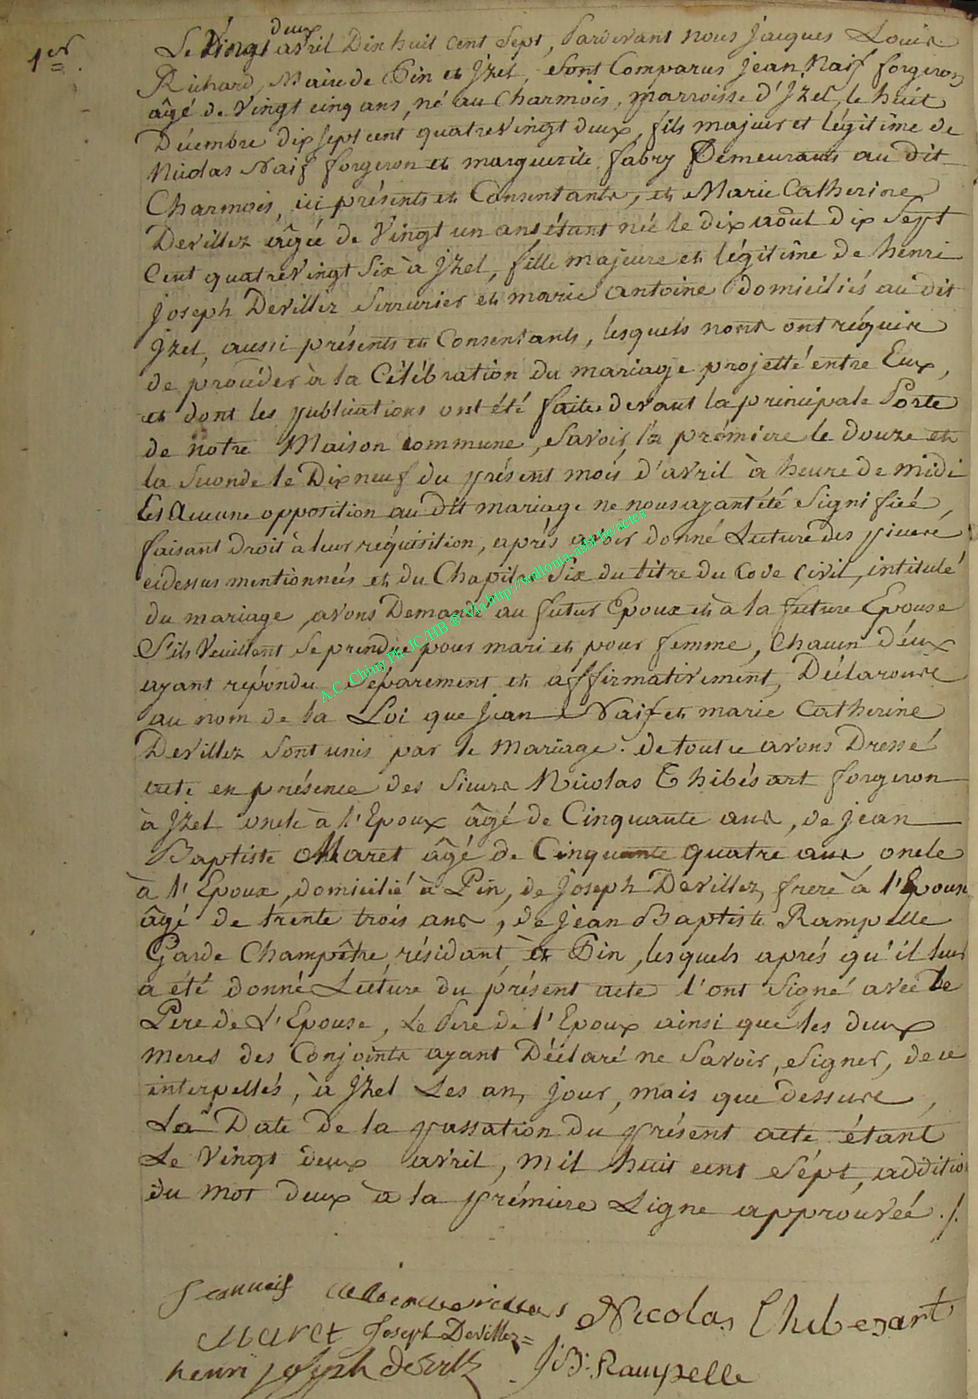 1er.
deux
Le Vingt avril Dix huit cent Sept, Pardevant nous Jacques Louis
Richard, Maire de Pin et Jzel, Sont Comparus Jean Naif forgeron
âgé de Vingt cinq ans, né au Charmois, parroisse d'Jzel, le huit
Décembre dix sept cent quatre vingt deux, fils majeur et légitime de
Nicolas Naif forgeron et marguerite fabry Demeurants au dit
Charmois, ici présents et Consentants, et Marie Catherine
Devillez âgée de Vingt un ans étant née le dix août dix Sept
Cent quatre Vingt Six à Jzel, fille majeure et légitime de henri
joseph Devillez Serrurier et marie antoine domiciliés au dit
Jzel, aussi présents et Consentants, lesquels nous ont réquire
de procéder à la Célébration du mariage projetté entre Eux,
et dont les publications ont été faites devant la principale Porte
de notre Maison Commune, Savoir, la prémiere le douze et
la Seconde le Dix neuf du présent mois d'avril à heure de midi
Et Aucune opposition au dit mariage ne nous ayant été Signifiée,
faisant Droit à leur réquisition, aprés avoir donné Lecture des pieces
cidessus mentionnées et du Chapitre Six du titre du Code Civil, intitulé
du mariage, avons Demandé au futur Epoux et à la future Epouse
S'ils Veuillent Se prendre pour mari et pour femme, Chacun d'eux
ayant répondu Séparement et affirmativement, Déclarons
au nom de la Loi que Jean Naif et marie Catherine
Devillez Sont unis par le Mariage. de tout ce avons Dressé
acte en présence des Sieurs Nicolas Thibésart forgeron
à Jzel oncle à l'Epoux âgé de Cinquante ans, de jean
Baptiste Maret âgé de Cinquante quatre ans oncle
à l'Epoux, domicilié à Pin, de Joseph Devillez, frere à l'Epouse
âgé de trente trois ans, de jean Baptiste Rampelle
Garde Champêtre, résidant, à Pin, lesquels aprés qu'il leur
a été donné Lecture du présent acte l'ont Signé avec Le
Pere de L'Epouse, Le Pere de l'Epoux ainsi que les deux
meres des Conjoints ayant Déclaré ne Savoir Signer, de ce
interpellés, à Jzel Les an, jour, mois que dessus,
La Date de la passation du présent acte étant
Le Vingt deux avril, mil huit cent Sépt, addition
du mot deux à la prémiere Ligne approuvéé ./.
A.C. Chiny Ph. JC. HB © Via http://wallonia-asbl.be/actes
Jean naif Nicolas Thibesart
Maret Joseph Devillez
henri joseph devillez J:B: Rampelle